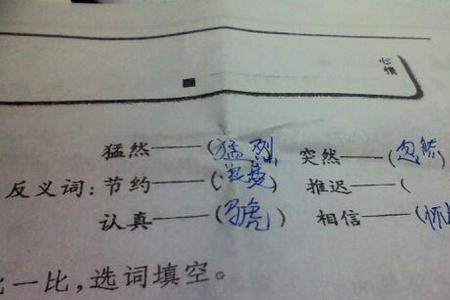 心情
猛然——(猛烈) 突然——(忽然)
反义词:节约——(浪费) 推迟——(
认真——(马虎) 相信——(怀
比一比,选词填空。